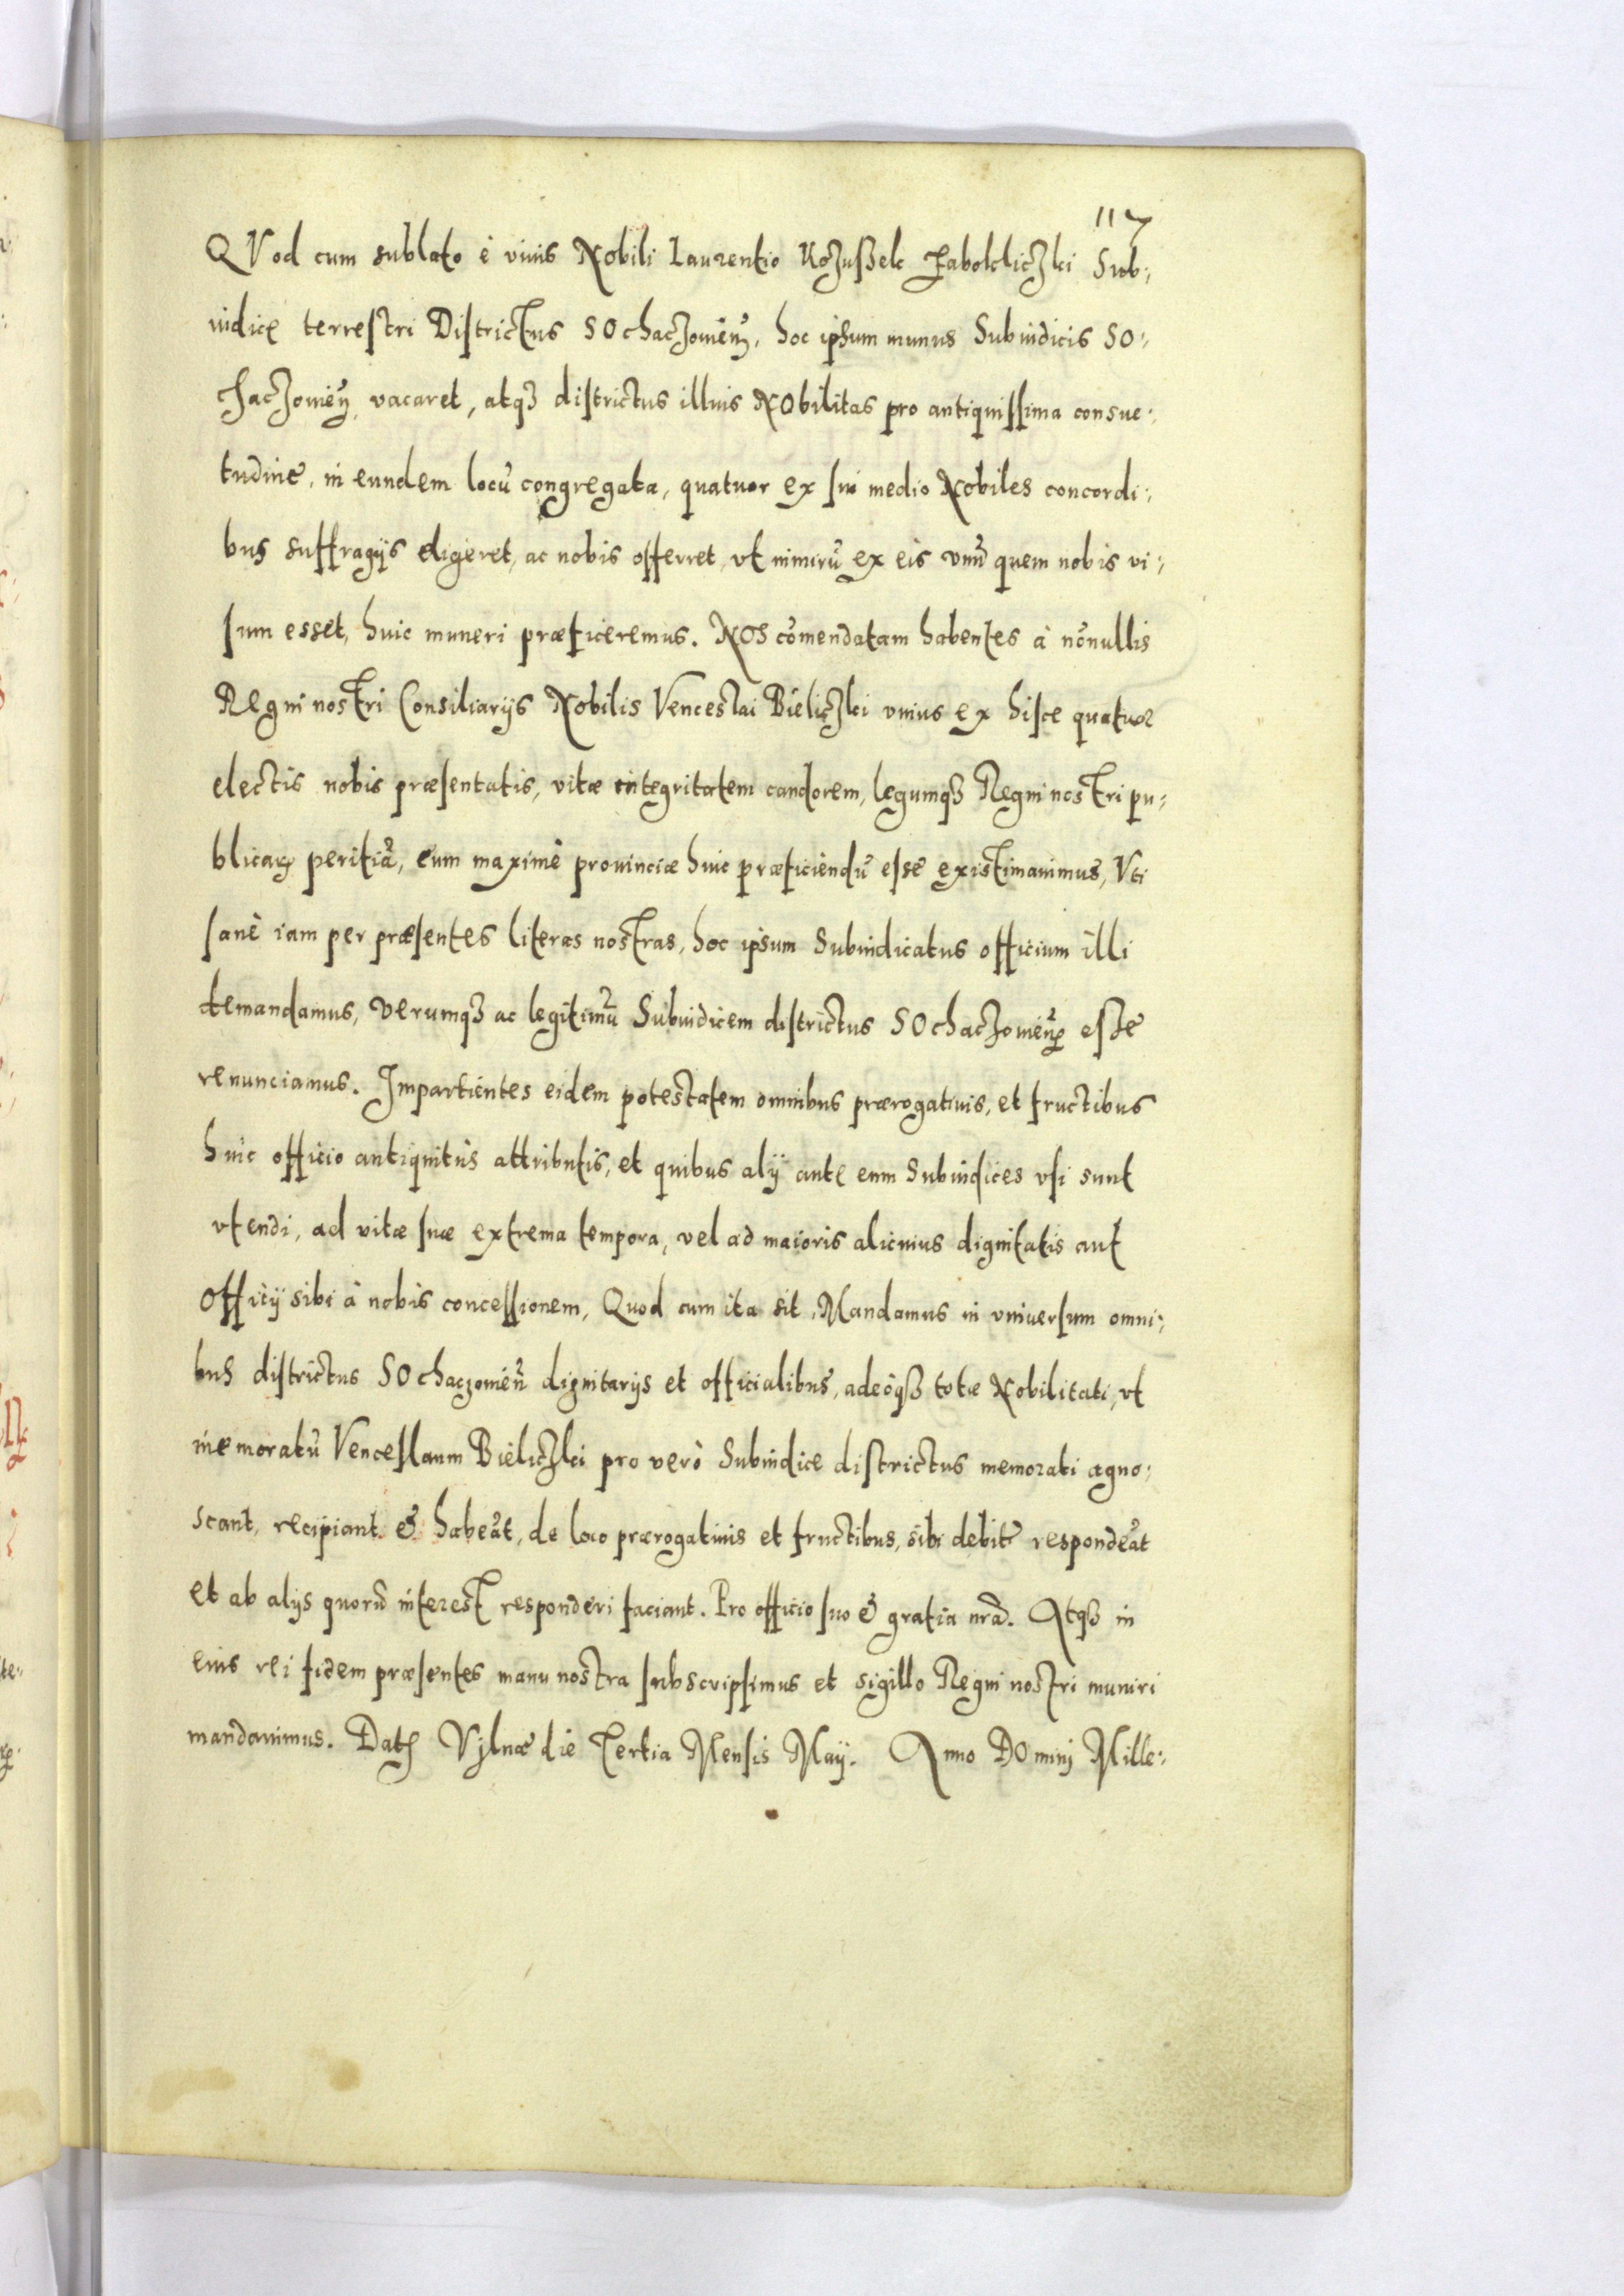 117
QVod cum sublato è viuis Nobili Laurentio Kozusßek Zabokliczki Sub:
iudice terrestri Districtus SOchaczouieñ, hoc ipsum munus Subiudicis SO:
chaczouieñ, vacaret, atqȝ districtus illius NObilitas pro antiquissima consue:
tudine, in eundem locũ congregata, quatuor ex sui medio Nobiles concordi:
bus suffragijs eligeret, ac nobis offerret, vt nimirũ ex eis vnũ quem nobis vi:
sum esset, huic muneri præficeremus. NOs cõmendatam habentes à nõnullis
Regni nostri Consiliarijs Nobilis Venceslai Bieliczki vnius ex hisce quatuor
electis nobis præsentatis, vitæ integritatem candorem, legumqȝ Regni nostri pu:
blicarꝝ peritiã, eum maximè prouinciæ huic præficiendũ esse existimauimus, Vti
sanè iam per præsentes literas nostras, hoc ipsum Subiudicatus officium illi
demandamus, verumqȝ ac legitimũ Subiudicem districtus SOchaczouieñ esse
renunciamus. Impartientes eidem potestatem omnibus prærogatiuis, et fructibus
huic officio antiquitùs attributis, et quibus alij ante eum Subiudices vsi sunt
vtendi, ad vitæ suæ extrema tempora, vel ad maioris alicuius dignitatis aut
Officij sibi à nobis concessionem, Quod cum ita sit, Mandamus in vniuersum omni:
bus districtus SOchaczouieñ dignitarijs et officialibus, adeòqȝ totæ Nobilitati, vt
memoratũ Venceslaum Bieliczki pro verò Subiudice districtus memorati agno:
scant, recipiant & habeãt, de loco prærogatiuis et fructibus, sibi debitè respondeãt
et ab alijs quorũ interest responderi faciant. Pro officio suo & gratia nrã. Atqȝ in
eius rei fidem præsentes manu nostra subscripsimus et sigillo Regni nostri muniri
mandauimus. Datȝ Vjlnæ die tertia Mensis Maij. Anno DOminj Mille: